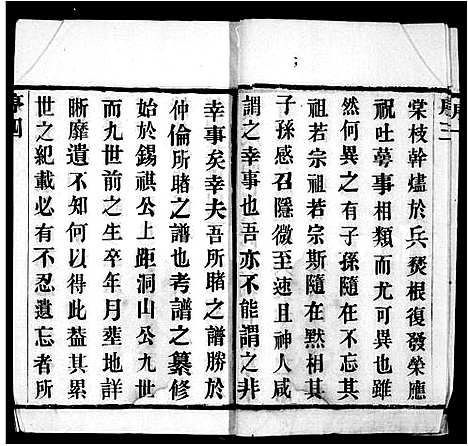 序三
棠枝幹燼於兵燹根復發榮應
祝吐蕚事相類而可異也雖
然何異之有子孫隨在若宗
祖若宗祖若宗斯隨在默相其
子孫感召隱微至速且神人咸
謂之幸事也吾亦不能謂之非
幸事矣幸夫吾所睹之譜勝於
仲倫所睹之譜也考譜之纂修
始於錫祺公上距洞山公九世
而九世前之生卒年月塟地詳
晰靡遺不知何以得此葢其累
世之紀載必有不忍遺忘者所
序四